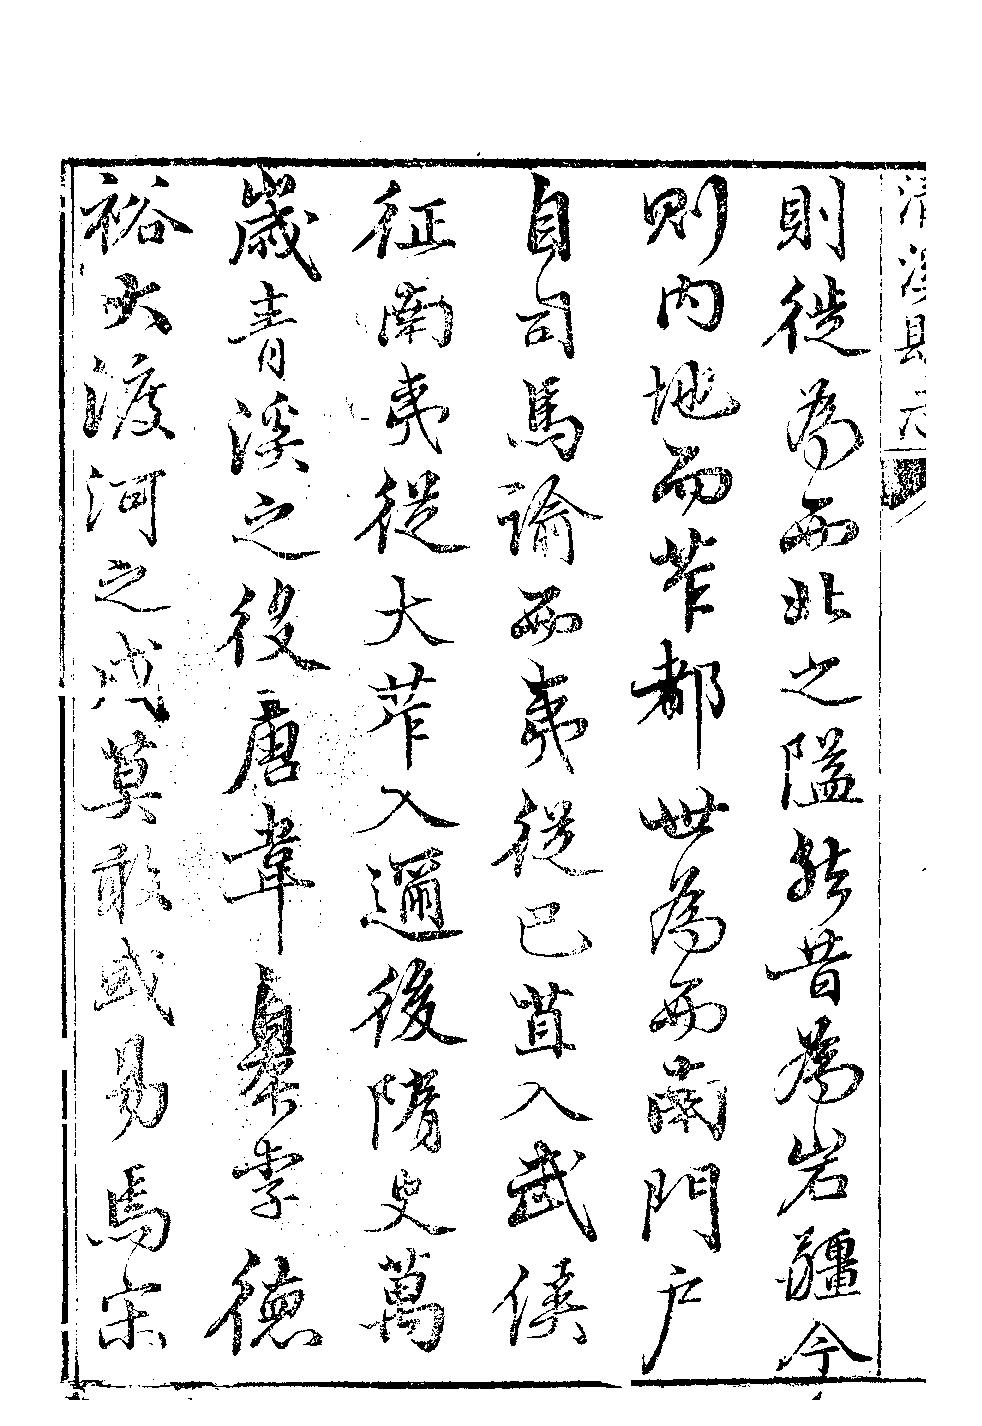 清溪县志
則徙為西北之隘然昔為岩疆今
則內地而莋都世為西南門户
自司馬諭西夷從巴苴入武侯
征南夷從大莋入邇後隋史萬
歲青溪之役唐韋皋李德
裕大渡河之戍莫敢或易焉宋